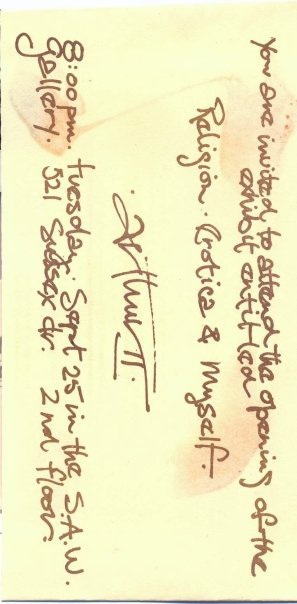 You are invited to attend the opening of the
exhibit entitled
Religion. Erotica & Myself.
Arthur II.
8:00 pm. tuesday. Sept 25 in the S.A.W.
Gallery. 521 Sussex dr. 2nd floor.